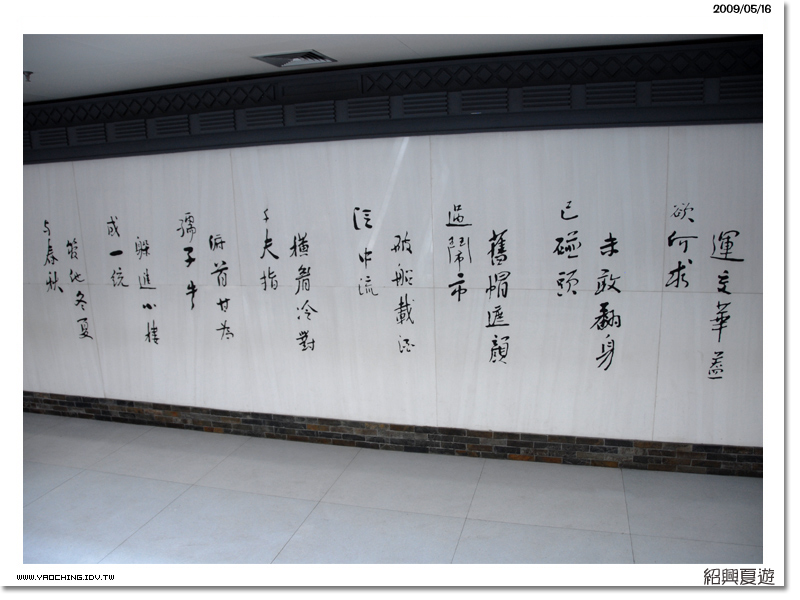 2009/05/16
運交華蓋
欲何求
未敢翻身
已碰頭
舊帽遮顏
過鬧市
破船載酒
泛中流
橫眉冷對
千夫指
俯首甘為
孺子牛
躲進小樓
成一統
管他冬夏
与春秋
WWW.YAOCHING.IDV.TW
紹興夏遊